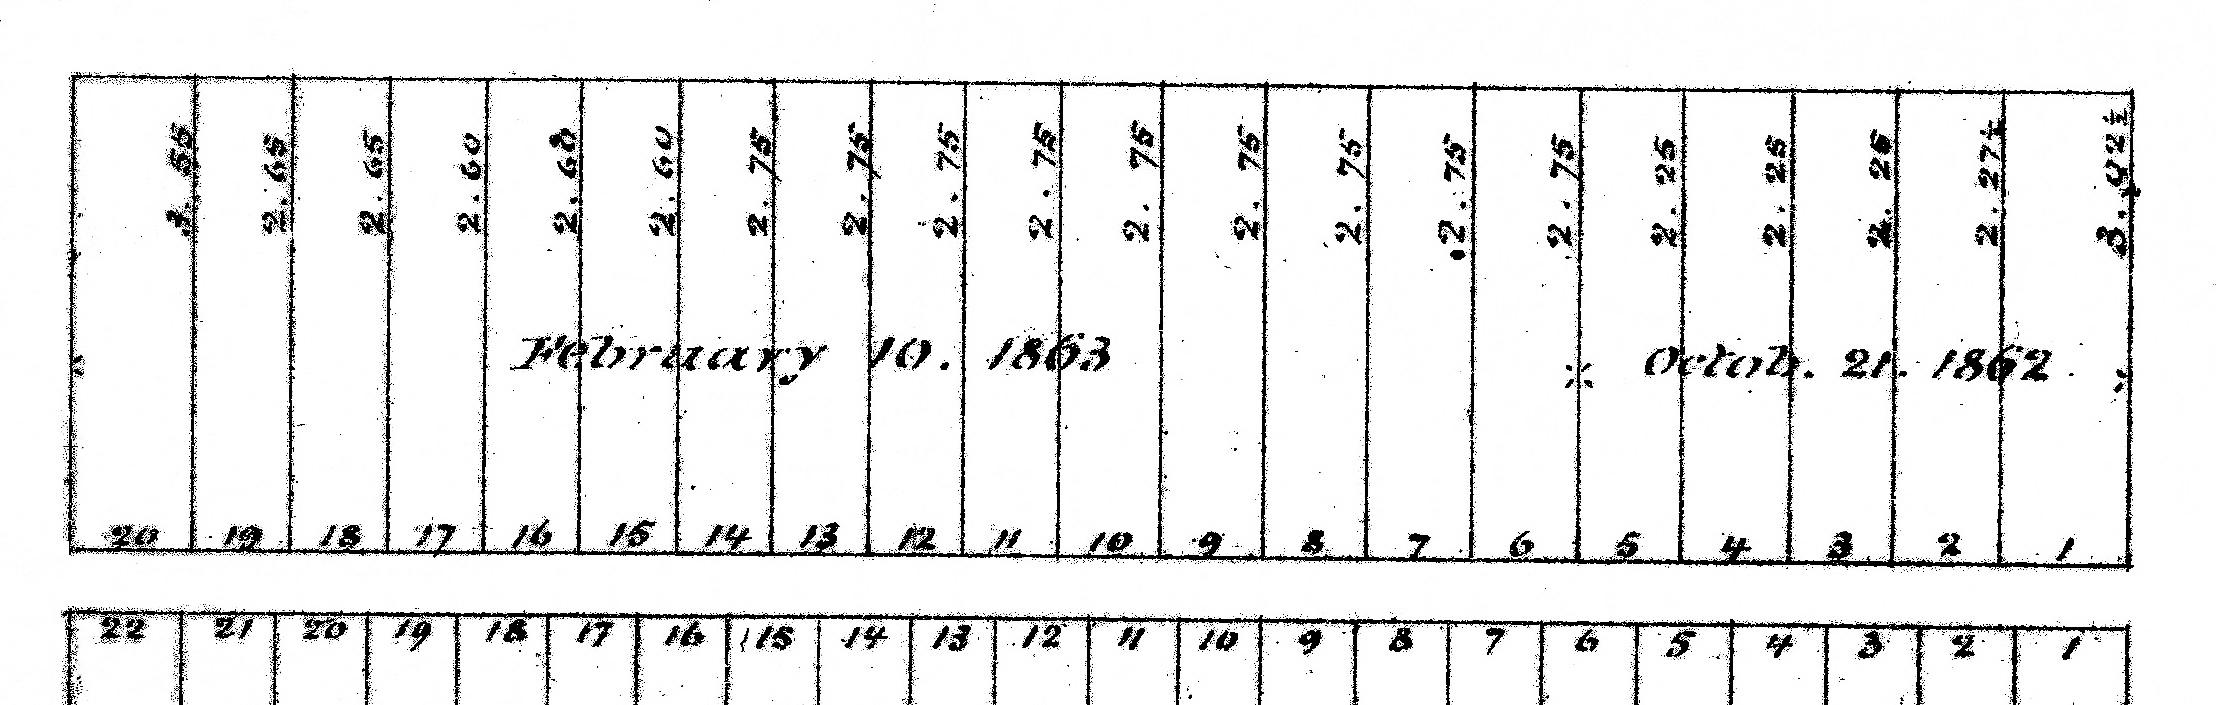 3.55 2.65 2.65 2.60 2.60 2.60 2.75 2.75 2.75 2.75 2.75 2.75 2.75 2.75 2.75 2.25 2.25 2.25 2.27½ 3.92½
February 10. 1863 Octob. 21. 1862
20 19 18 17 16 15 14 13 12 11 10 9 8 7 6 5 4 3 2 1
22 21 20 19 18 17 16 15 14 13 12 11 10 9 8 7 6 5 4 3 2 1